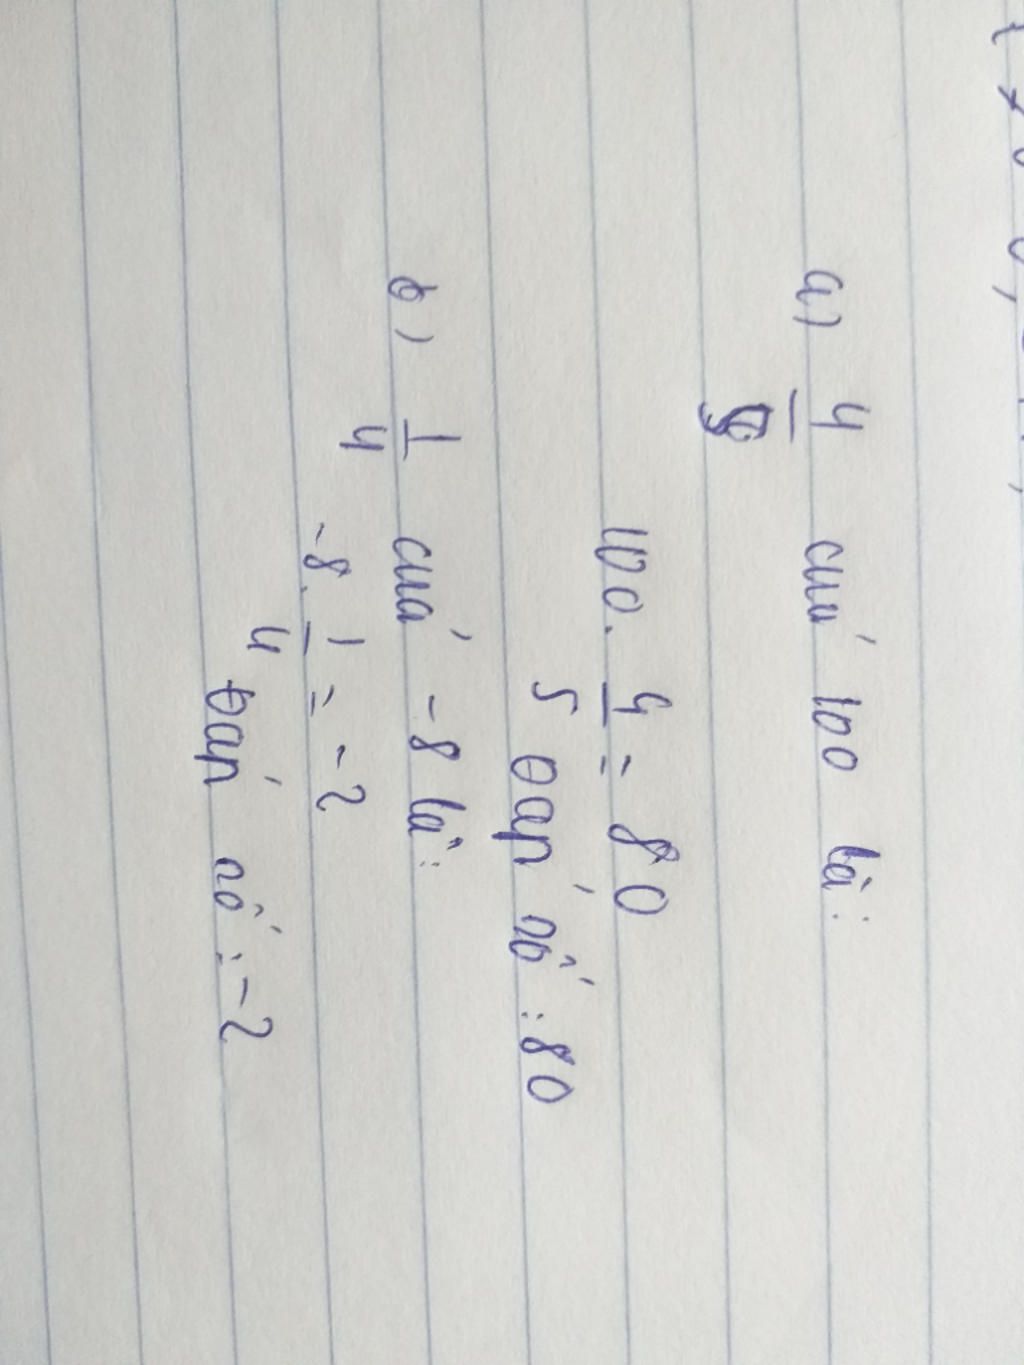 a) 4/5 của 100 là:
100. 4/5 = 80
Đáp số : 80
b) 1/4 của -8 là:
-8. 1/4 = -2
Đáp số : -2